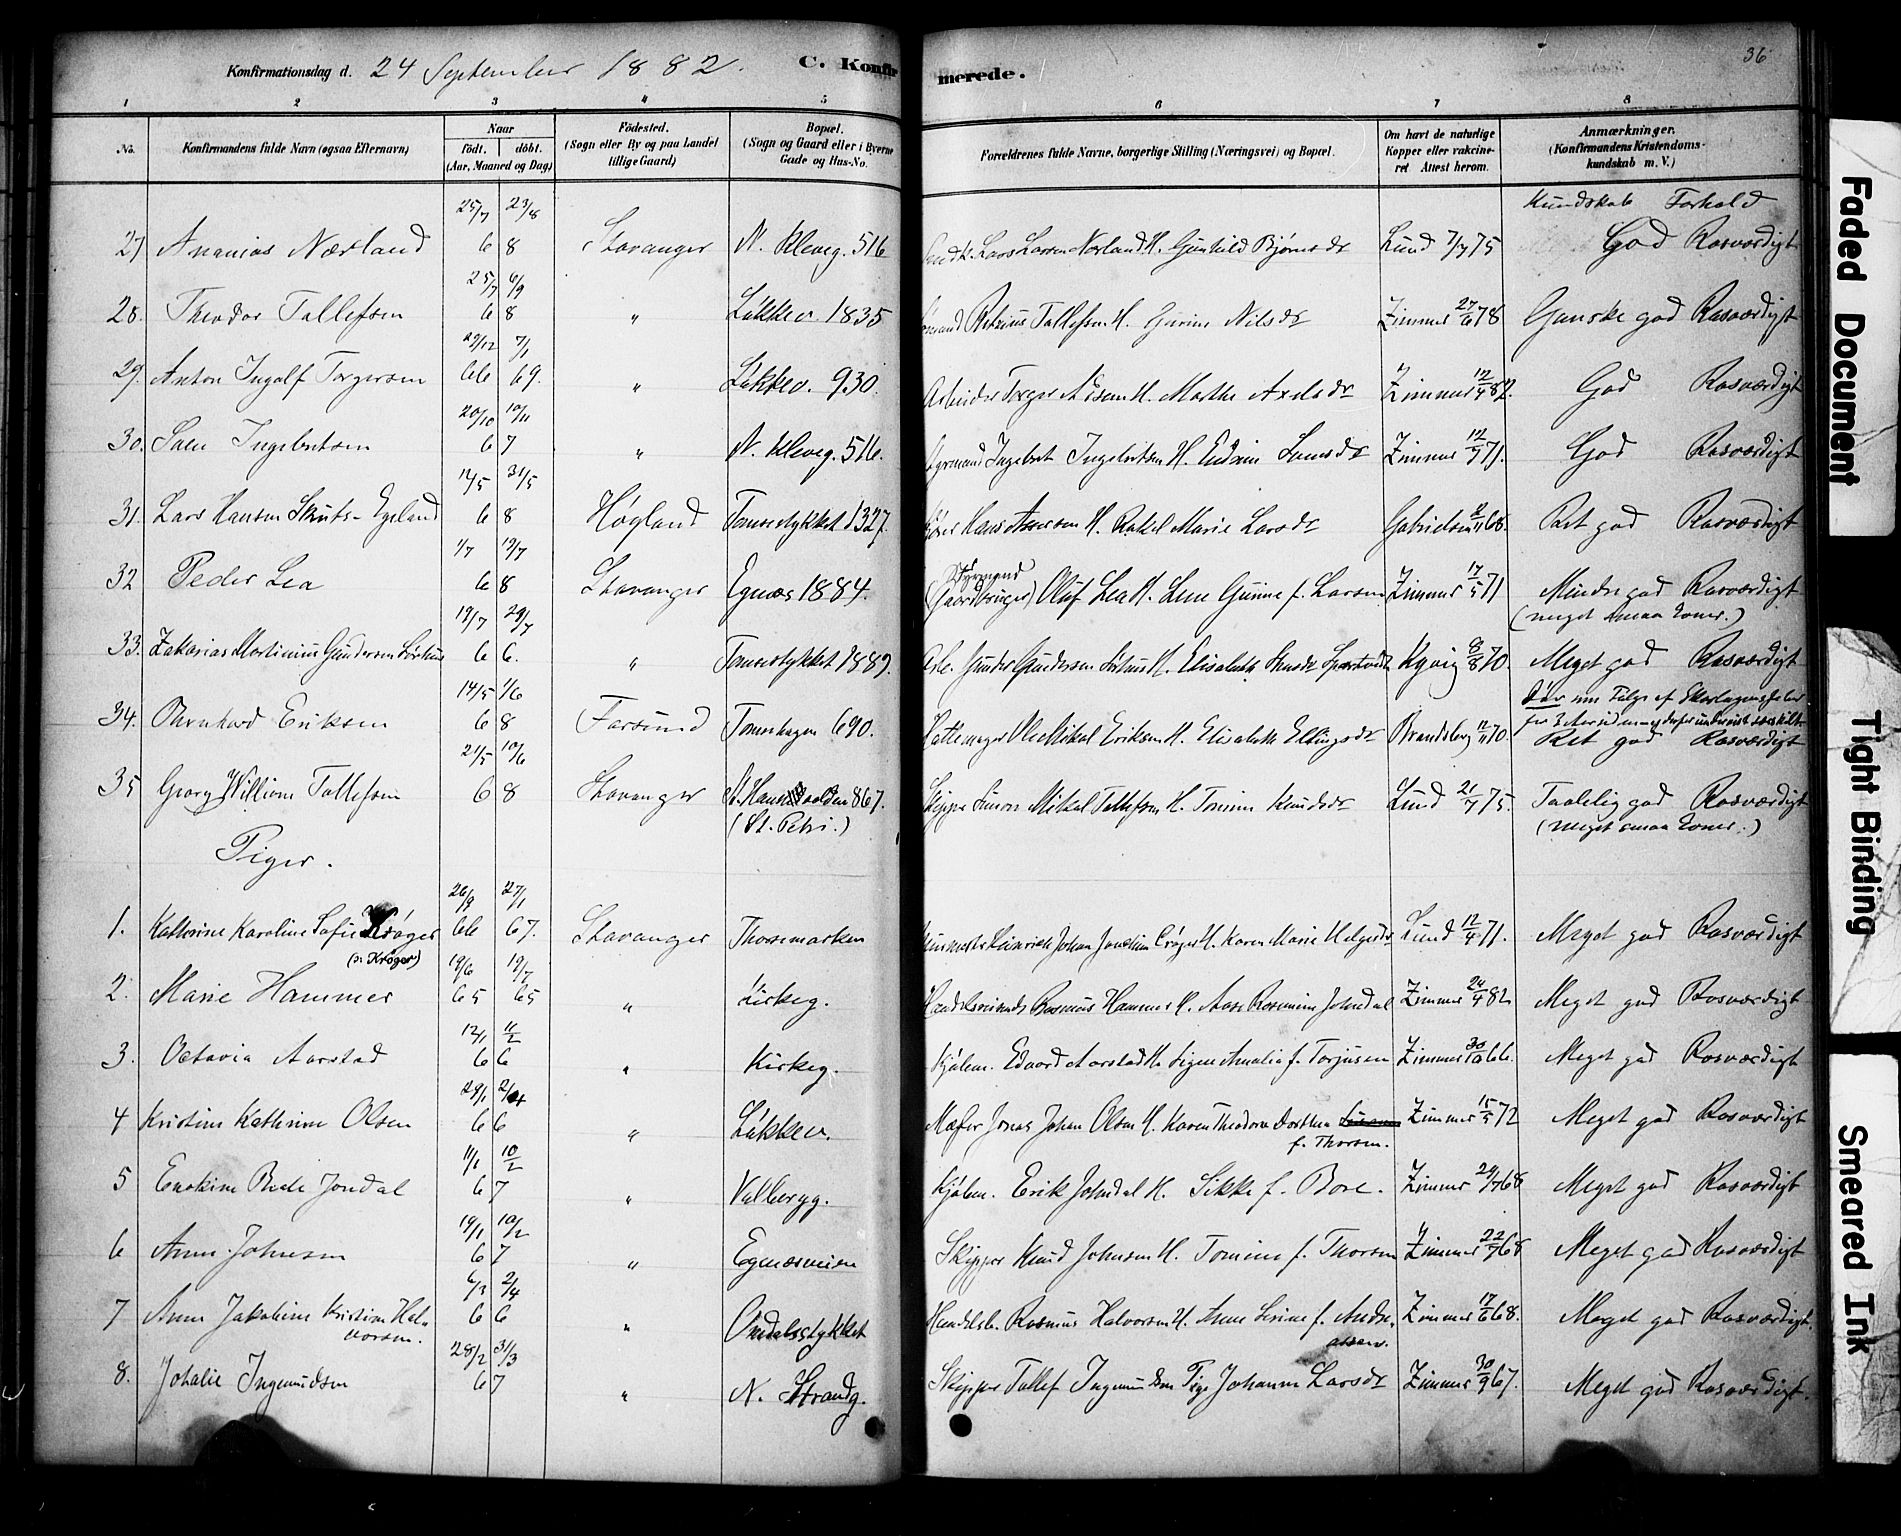 Konfirmationsdag d. 24 September 1882. C. Konfirmerede. 36
1 2 3 4 5 6 7 8
No. Konfirmandens fulde Navn (ogsaa Efternavn) Naar født. døbt. (Aar, Maaned og Dag) Födested. (Sogn eller By og paa Landet tillige Gaard) Bopæl. (Sogn og Gaard eller i Byerne Gade og Hus-No. Forældrenes fulde Navne, borgerlige Stilling (Næringsvei) og Bopæl. Om havt de naturlige Kopper eller vakcineret Attest herom. Anmærkninger. (Konfirmandens Kristendomskundskab m. V.)
Kundskab Forhold
27 Ananias Nærland 25/7 68 23/8 Stavanger N. Kleveg. 516 Lars Larsen Nærland H. Gunhild Bjørnsdr Lund 7/7 75 God Rosværdigt
28. Theodor Tallefsen 25/7 68 6/9 " Løkkev. 1835 Petrius Tallefsen H. Gurine Nilsdr Zimmer 27/6 78 Ganske god Rosværdigt
29. Anton Ingolf Torgersen 29/12 66 7/1 69. " Løkkev. 930. Arbeider Torger H. Marthe Axelsdr Zimmer 12/4 82. God Rosværdigt
30. Ingebretsen 20/10 67 10/11 " N. Kleveg. 516. Styrmand Ingebret Ingebretsen H. Zimmer 12/7 71. God Rosværdigt
31. Lars Hansen Egeland 14/5 68 31/5 Høgland Tomsestykket 1327. Hans Assersen H. Rakel Marie Larsdr Gabrielsen 2/11 68. Ret god Rosværdigt
32 Peder Lea 1/7 68 19/7 Stavanger Egnæs 1884. Styrmand (Gaardbruger) Oluf Lea H. Lene Gurine f. Larsen Zimmer 17/5 71 Mindre god Rosværdigt
(meget smaa Evner.)
33. Zakarias Martinius Gundersen Sørhus 19/7 66. 29/7 " Tomsestykket 1889. Arb. Gunder Gundersen Sørhus H. Elisabeth Kyvig 8/8 70 Meget god Rosværdigt
34. Bernhard Eriksen 14/5 68 1/6 Farsund Tomsehagen 690. Hattemager Ole Mikal Eriksen H. Elisabeth Ellingsdr Brandsberg 12/11 70. Døv som Følge af Skarlagensfeber
for 3 Aar siden
Ret god Rosværdigt
35 Georg William Tallefsen 21/5 68 10/6 Stavanger St. Hans 867. (St. Petri.) Skipper Simon Mikal Tallefsen H. Tomine Knudsdr Lund 21/7 75. Taalelig god Rosværdigt
(meget smaa Evner.)
Piger.
1. Kathrine Karoline Sofie Krøger (ɔ: Krøger) 26/9 66 27/1 67. Stavanger Thorsemarken Heinrich Johan Joachim Crøger H. Karen Marie Helgesdr Lund 12/4 71. Meget god Rosværdigt
2. Marie Hammer 19/6 65 19/7 65 " Kirkeg. Rasmus Hammer H. Rasmine Johndal Zimmer 24/4 82 Meget god Rosværdigt
3. Octavia Aarstad 12/1 66 11/2 " Kirkeg. Kjøbm. Edvard Aarstad H. Signe Amalia f. Torjusen Zimmer 30/10 66. Meget god Rosværdigt
4 Kristine Kathrine Olsen 29/1 66 2/4 " Løkkev. Mægler Jonas Johan Olsen H. Karen Theodora Dorthea f. Thorsen. Zimmer 15/5 72 Meget god Rosværdigt
5 Enokine Bede Jondal 11/1 67 10/2 " Valbergg. Kjøbm. Erik Johndal H. Sikke f. Bore. Zimmer 29/7 68 Meget god Rosværdigt
6 Anne Johnsen 19/1 67 10/2 " Egenæsveien Skipper Knud Johnsen H. Tomine f. Thorsen Zimmer 22/7 68 Meget god Rosværdigt
7 Anne Jakobine Kristine Halvorsen. 6/3 66 2/4 " Ondalsstykket Handelsb. Rasmus Halvorsen H. Anne Serine f. Andreassen. Zimmer 17/6 68. Meget god Rosværdigt.
8. Johalie Ingemundsen 28/2 67 31/3 " N. Strandg. Skipper Tallef Ingemundsen Pige Johanne Larsdr Zimmer 30/9 67. Meget god Rosværdigt.
Faded Document
Tight Binding
Smeared Ink